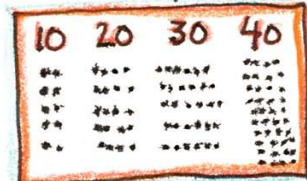 10 20 30 40